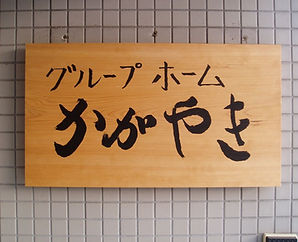 グループ ホーム
かがやき